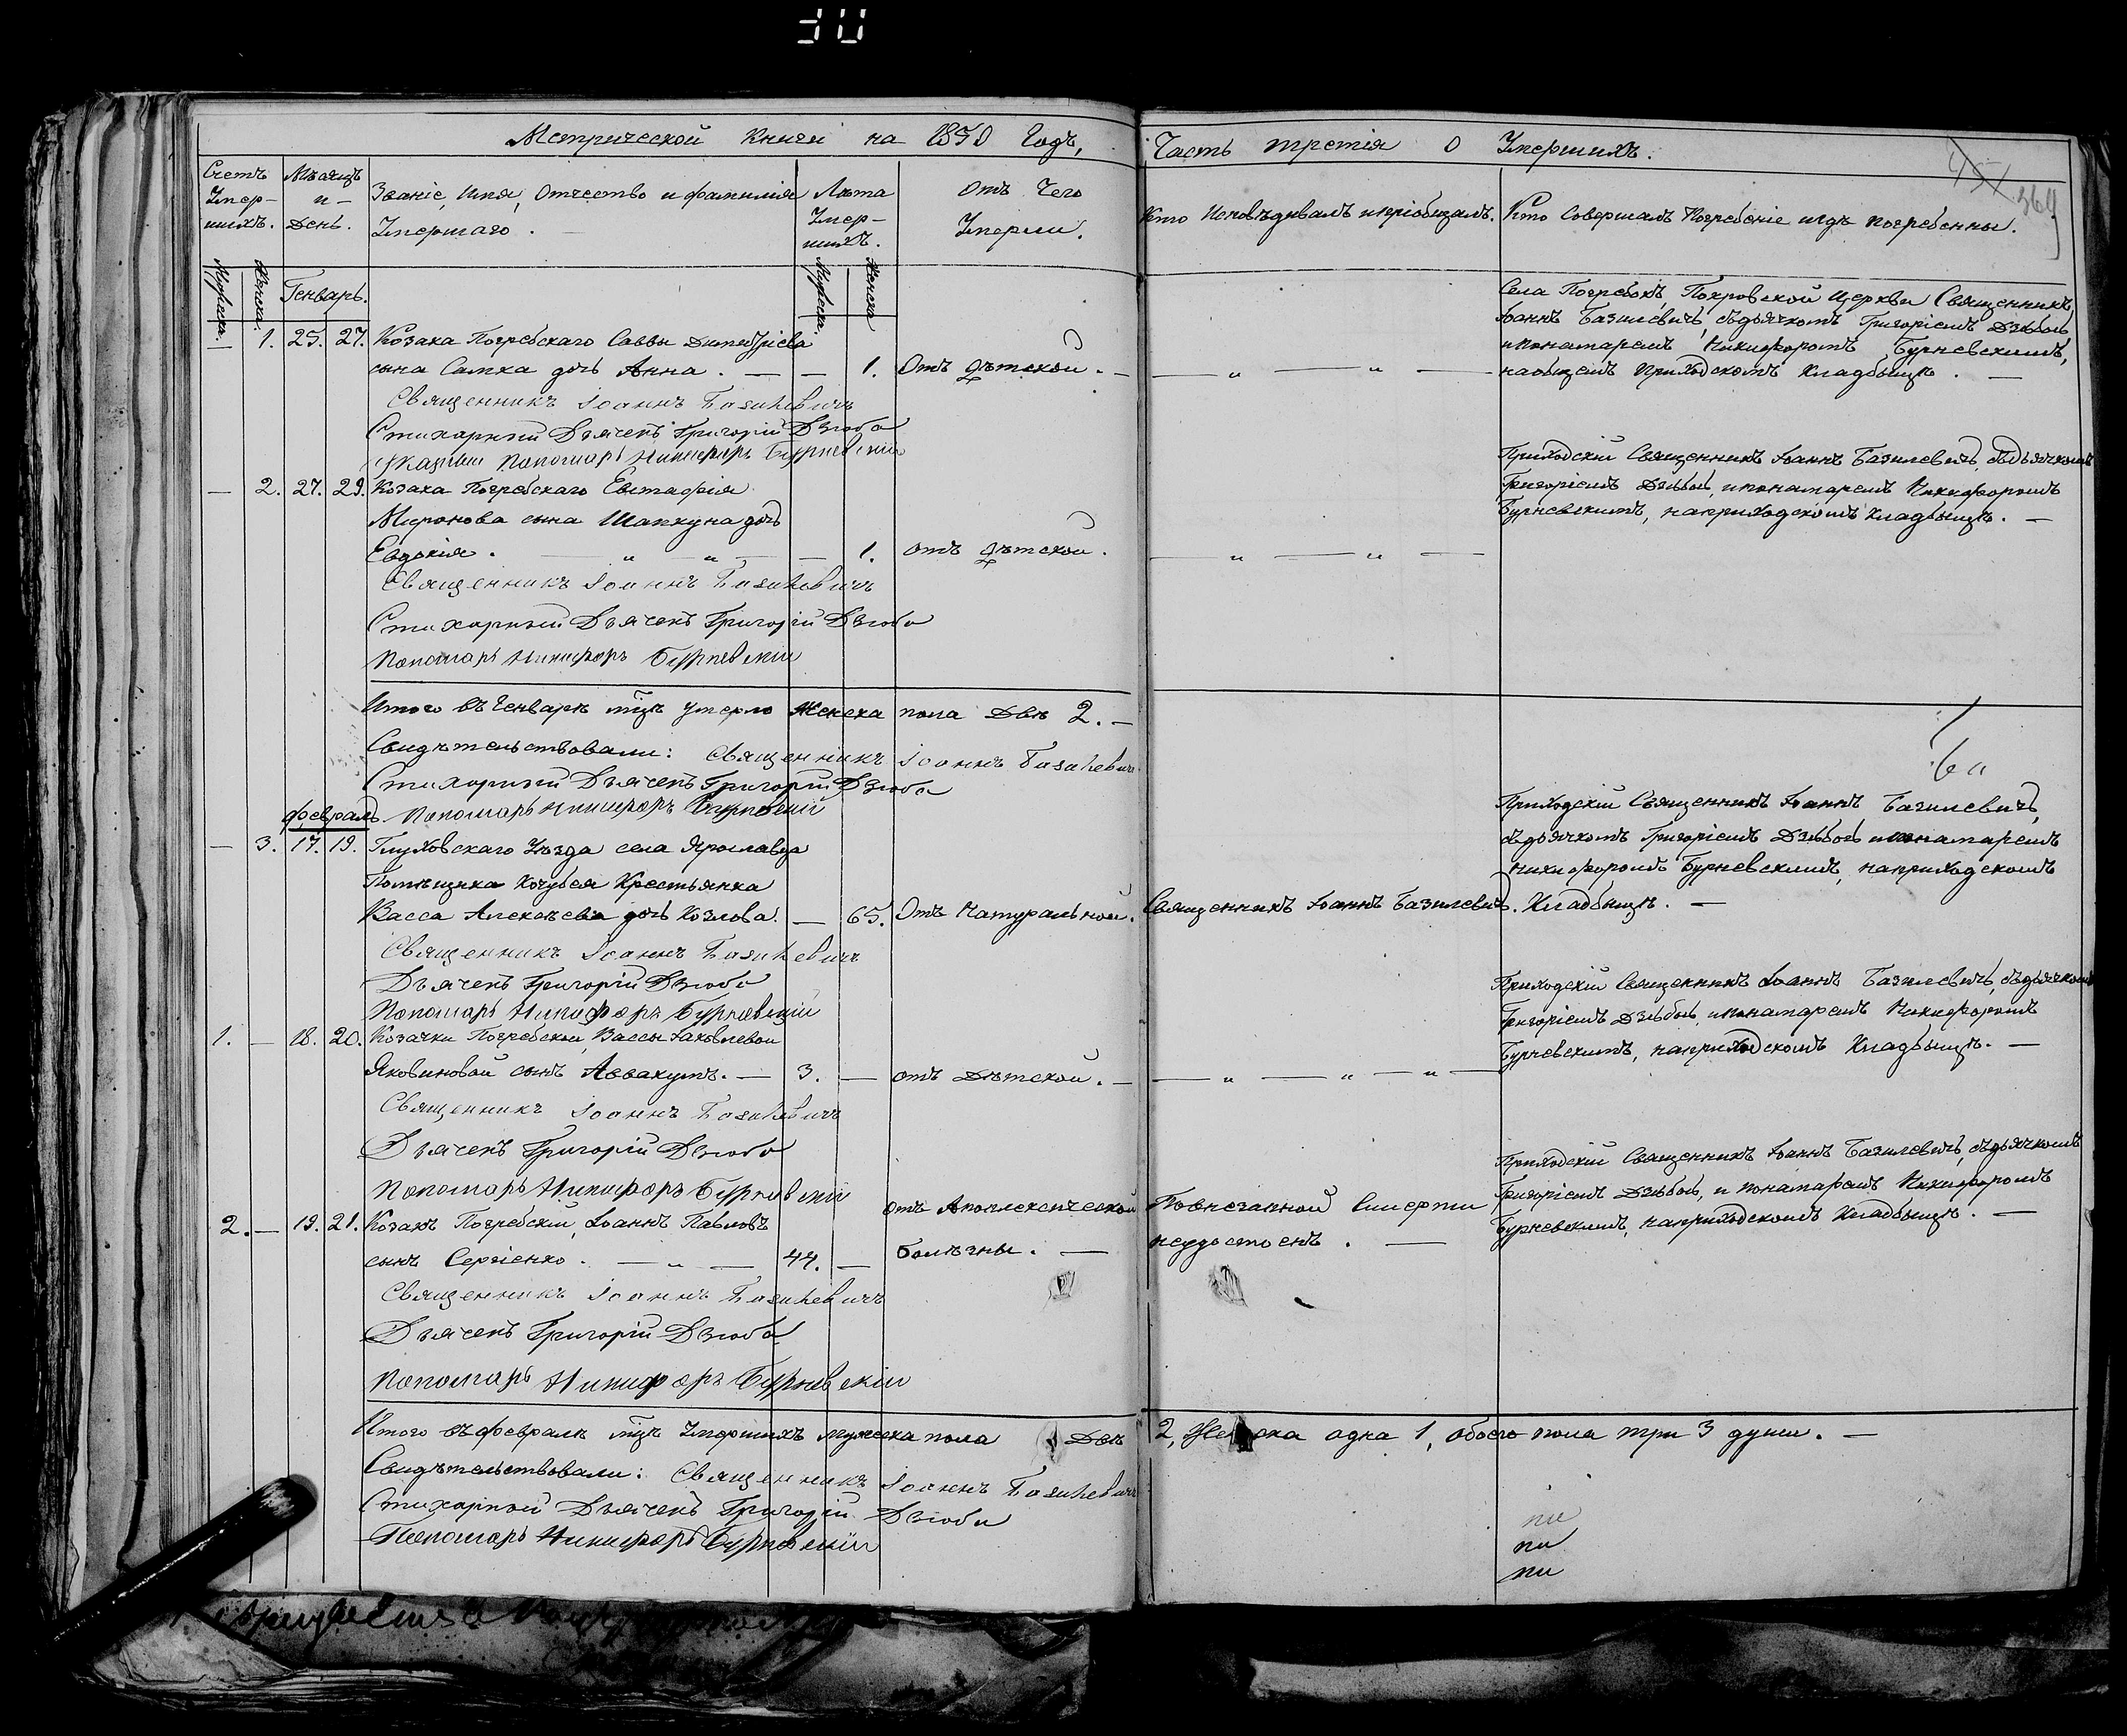 Метрической Книги на 1850 Годъ,
Счетъ Умер- шихъ.
Мѣсяцъ и День.
Званіе, Имя, Отчество и фамилія Умершаго.
Лѣта Умер- шихъ.
Отъ Чего Умерли.
Мужеска.
Женска.
Генварь.
Мужеска.
Женска.
— 1. 25. 27. Козака Погребскаго Саввы Димитріева
сына Самка дочь Анна. — — 1. Отъ Дѣтской. —
Священникъ Іоаннъ Базилевичъ
Стихарный Дьячекъ Григорій Дзюба
Указный Пономарь Никифоръ Бурневскій
— 2. 27. 29. Козака Погребскаго Евстафія
Миронова сына Шапкуна дочь
Евдокія. — „ — „ — — 1. отъ Дѣтской.
Священникъ Іоаннъ Базилевичъ
Стихарный Дьячекъ Григорій Дзюба
Пономарь Никифоръ Бурневскій
Итого въ Генварѣ мцѣ умерло Женска пола Двѣ 2. —
Свидѣтельствовали: Священникъ Іоаннъ Базилевичъ
Стихарный Дьячекъ Григорій Дзюба
Февраль. Пономарь Никифоръ Бурневскій
— 3. 17. 19. Глуховскаго Уѣзда села Ярославца
Помѣщика Кочубея Крестьянка
Васса Алексѣева дочь Козлова. — 65. Отъ Натуральной.
Священникъ Іоаннъ Базилевичъ
Дьячекъ Григорій Дзюба
Пономарь Никифоръ Бурневскій
1. — 18. 20. Козачки Погребской Вассы Іаковлевой
Яковиновой сынъ Аввакумъ. — 3. — отъ Дѣтской. —
Священникъ Іоаннъ Базилевичъ
Дьячекъ Григорій Дзюба
Пономарь Никифоръ Бурневскій
2. — 19. 21. Козакъ Погребскій, Іоаннъ Павловъ
сынъ Сергіенко. — „ — 44. — отъ Апоплексической
Болѣзны. —
Священникъ Іоаннъ Базилевичъ
Дьячекъ Григорій Дзюба
Пономарь Никифоръ Бурневскій
Итого въ февралѣ мцѣ Умершихъ мужеска пола Двѣ
Свидѣтельствовали: Священникъ Іоаннъ Базилевичъ
Стихарный Дьячекъ Григорій Дзюба
Пономарь Никифоръ Бурневскій
Часть третія о Умершихъ.
364
Кто Исповѣдывалъ и пріобщалъ.
Кто Совершалъ Погребеніе и гдѣ погребенны.
Села Погребокъ, Покровской Церкви Священникъ,
Іоаннъ Базилевичъ, съ дьячкомъ Григоріемъ Дзюбою
и понамаремъ Никифоромъ Бурневскимъ,
на общемъ Приходскомъ Кладбыщѣ. —
— „ — „ —
Приходскій Священникъ Іоаннъ Базилевичъ, съ дьячкомъ
Григоріемъ Дзюбою, и понамаремъ Никифоромъ
Бурневскимъ, на приходскомъ кладбыщѣ. —
— „ — „ —
Приходскій Священникъ Іоаннъ Базилевичъ,
съ дьячкомъ Григоріемъ Дзюбою и понамаремъ
Никифоромъ Бурневскимъ, на приходскомъ
Священникъ Іоаннъ Базилевичъ. Кладбыщѣ. —
Приходскій Священникъ Іоаннъ Базилевичъ, съ дьячкомъ
Григоріемъ Дзюбою, и понамаремъ Никифоромъ
Бурневскимъ, на приходскомъ Кладбыщѣ. —
— „ — „ — „ —
Приходскій Священникъ Іоаннъ Базилевичъ, съ дьячкомъ
Григоріемъ Дзюбою, и понамаремъ Никифоромъ
Бурневскимъ, на приходскомъ Кладбыщѣ. —
По внезапной Смерти
неудостоенъ. —
2, Женска одна 1, обоего пола три 3 души. —